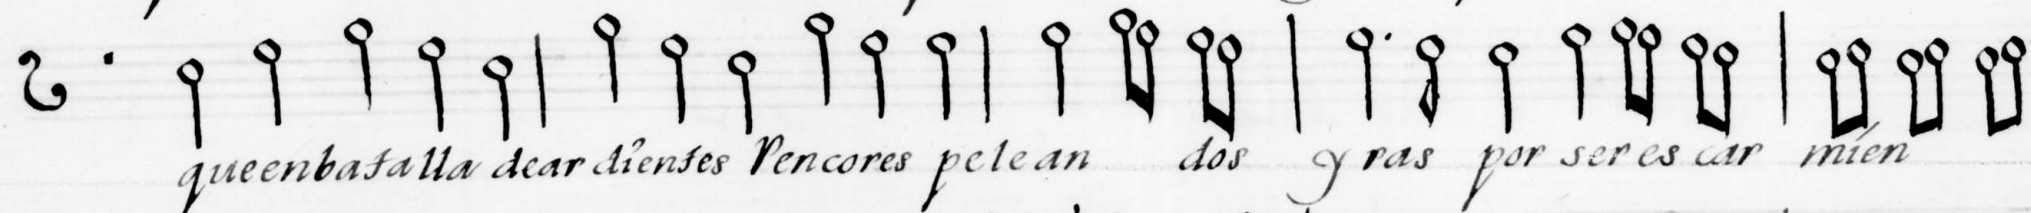 queenbatalla deardientes Rencores pelean dos yras por ser es car mien